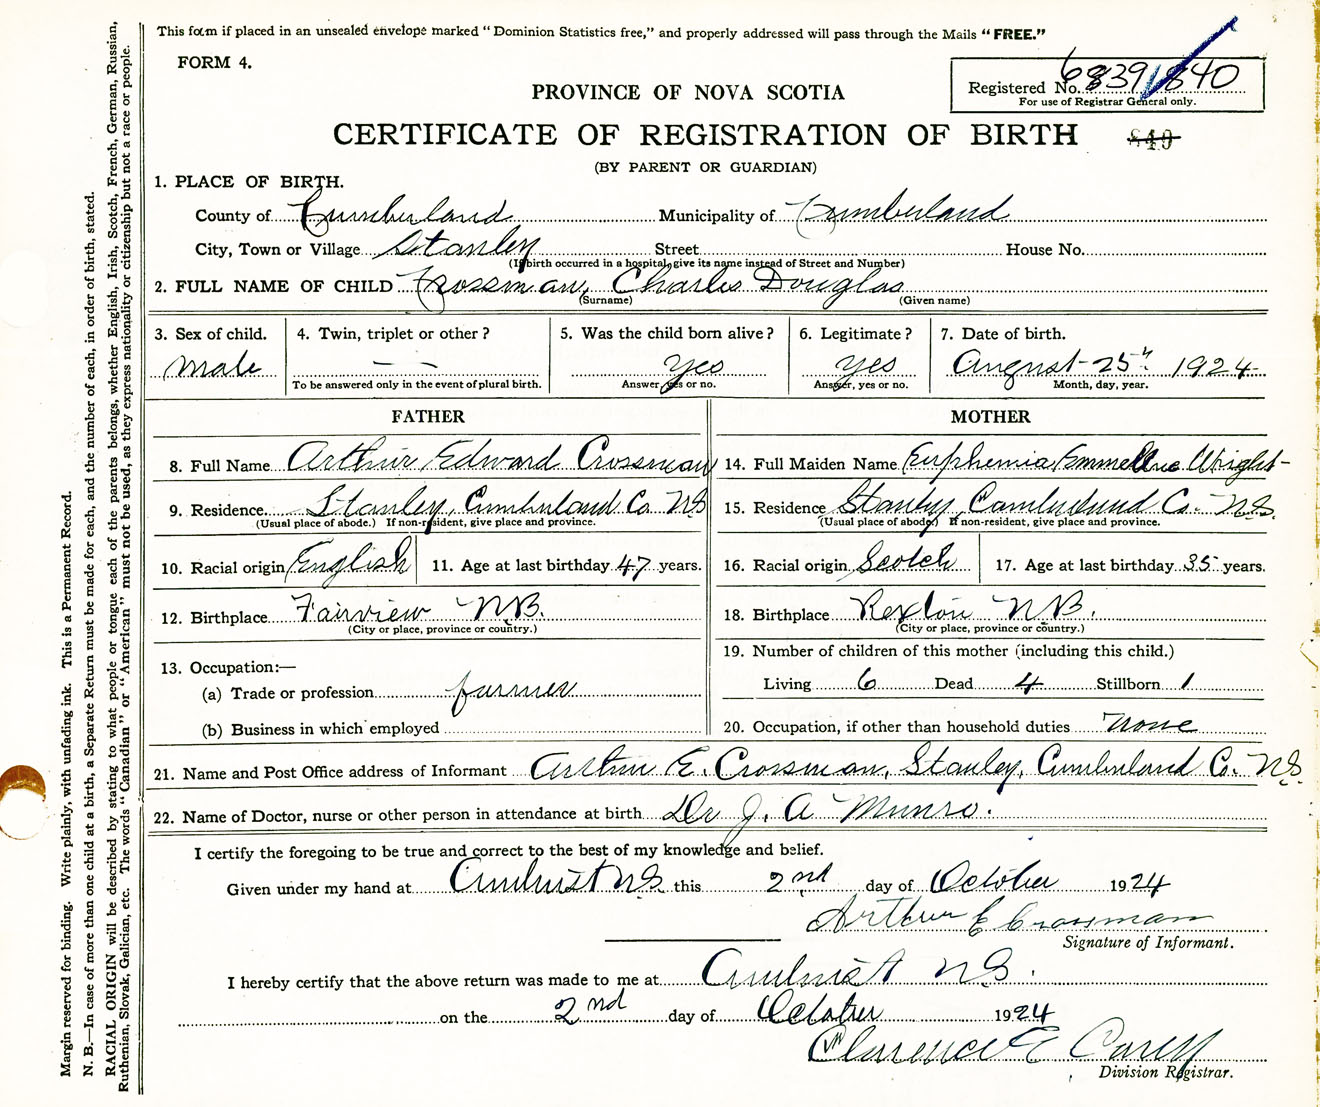 This form if placed in an unsealed envelope marked "Dominion Statistics free," and properly addressed will pass through the Mails "FREE."
FORM 4.
Registered No. 6839 840
For use of Registrar General only.
PROVINCE OF NOVA SCOTIA
CERTIFICATE OF REGISTRATION OF BIRTH 840
(BY PARENT OR GUARDIAN)
1. PLACE OF BIRTH.
County of Cumberland Municipality of Cumberland
City, Town or Village Stanley Street House No.
(If birth occurred in a hospital, give its name instead of Street and Number)
2. FULL NAME OF CHILD Crossman, Charles Douglas
(Surname) (Given name)
3. Sex of child. 4. Twin, triplet or other? 5. Was the child born alive? 6. Legitimate? 7. Date of birth.
Male — — Yes Yes August 25th 1924
To be answered only in the event of plural birth. Answer, yes or no. Answer, yes or no. Month, day, year.
FATHER MOTHER
8. Full Name Arthur Edward Crossman 14. Full Maiden Name Euphemia Emmeline Wright
9. Residence Stanley, Cumberland Co. NS 15. Residence Stanley Cumberland Co. N.S.
(Usual place of abode.) If non-resident, give place and province. (Usual place of abode) If non-resident, give place and province.
10. Racial origin English 11. Age at last birthday 47 years. 16. Racial origin Scotch 17. Age at last birthday 35 years.
12. Birthplace Fairview N.B. 18. Birthplace Rexton N.B.
(City or place, province or country.) (City or place, province or country.)
13. Occupation:— 19. Number of children of this mother (including this child.)
(a) Trade or profession farmer Living 6 Dead 4 Stillborn 1
(b) Business in which employed 20. Occupation, if other than household duties None
21. Name and Post Office address of Informant Arthur E. Crossman, Stanley, Cumberland Co. NS
22. Name of Doctor, nurse or other person in attendance at birth Dr J. A Munro.
I certify the foregoing to be true and correct to the best of my knowledge and belief.
Given under my hand at Amherst N.S. this 2nd day of October 1924
Arthur E Crossman
Signature of Informant.
I hereby certify that the above return was made to me at Amherst N.S.
on the 2nd day of October 1924
Clarence E Carey
Division Registrar.
Margin reserved for binding. Write plainly, with unfading ink. This is a Permanent Record.
N. B.—In case of more than one child at a birth, a Separate Return must be made for each, and the number of each, in order of birth, stated.
RACIAL ORIGIN will be described by stating to what people or tongue each of the parents belongs, whether English, Irish, Scotch, French, German, Russian,
Ruthenian, Slovak, Galician, etc. The words "Canadian" or "American" must not be used, as they express nationality or citizenship but not a race or people.